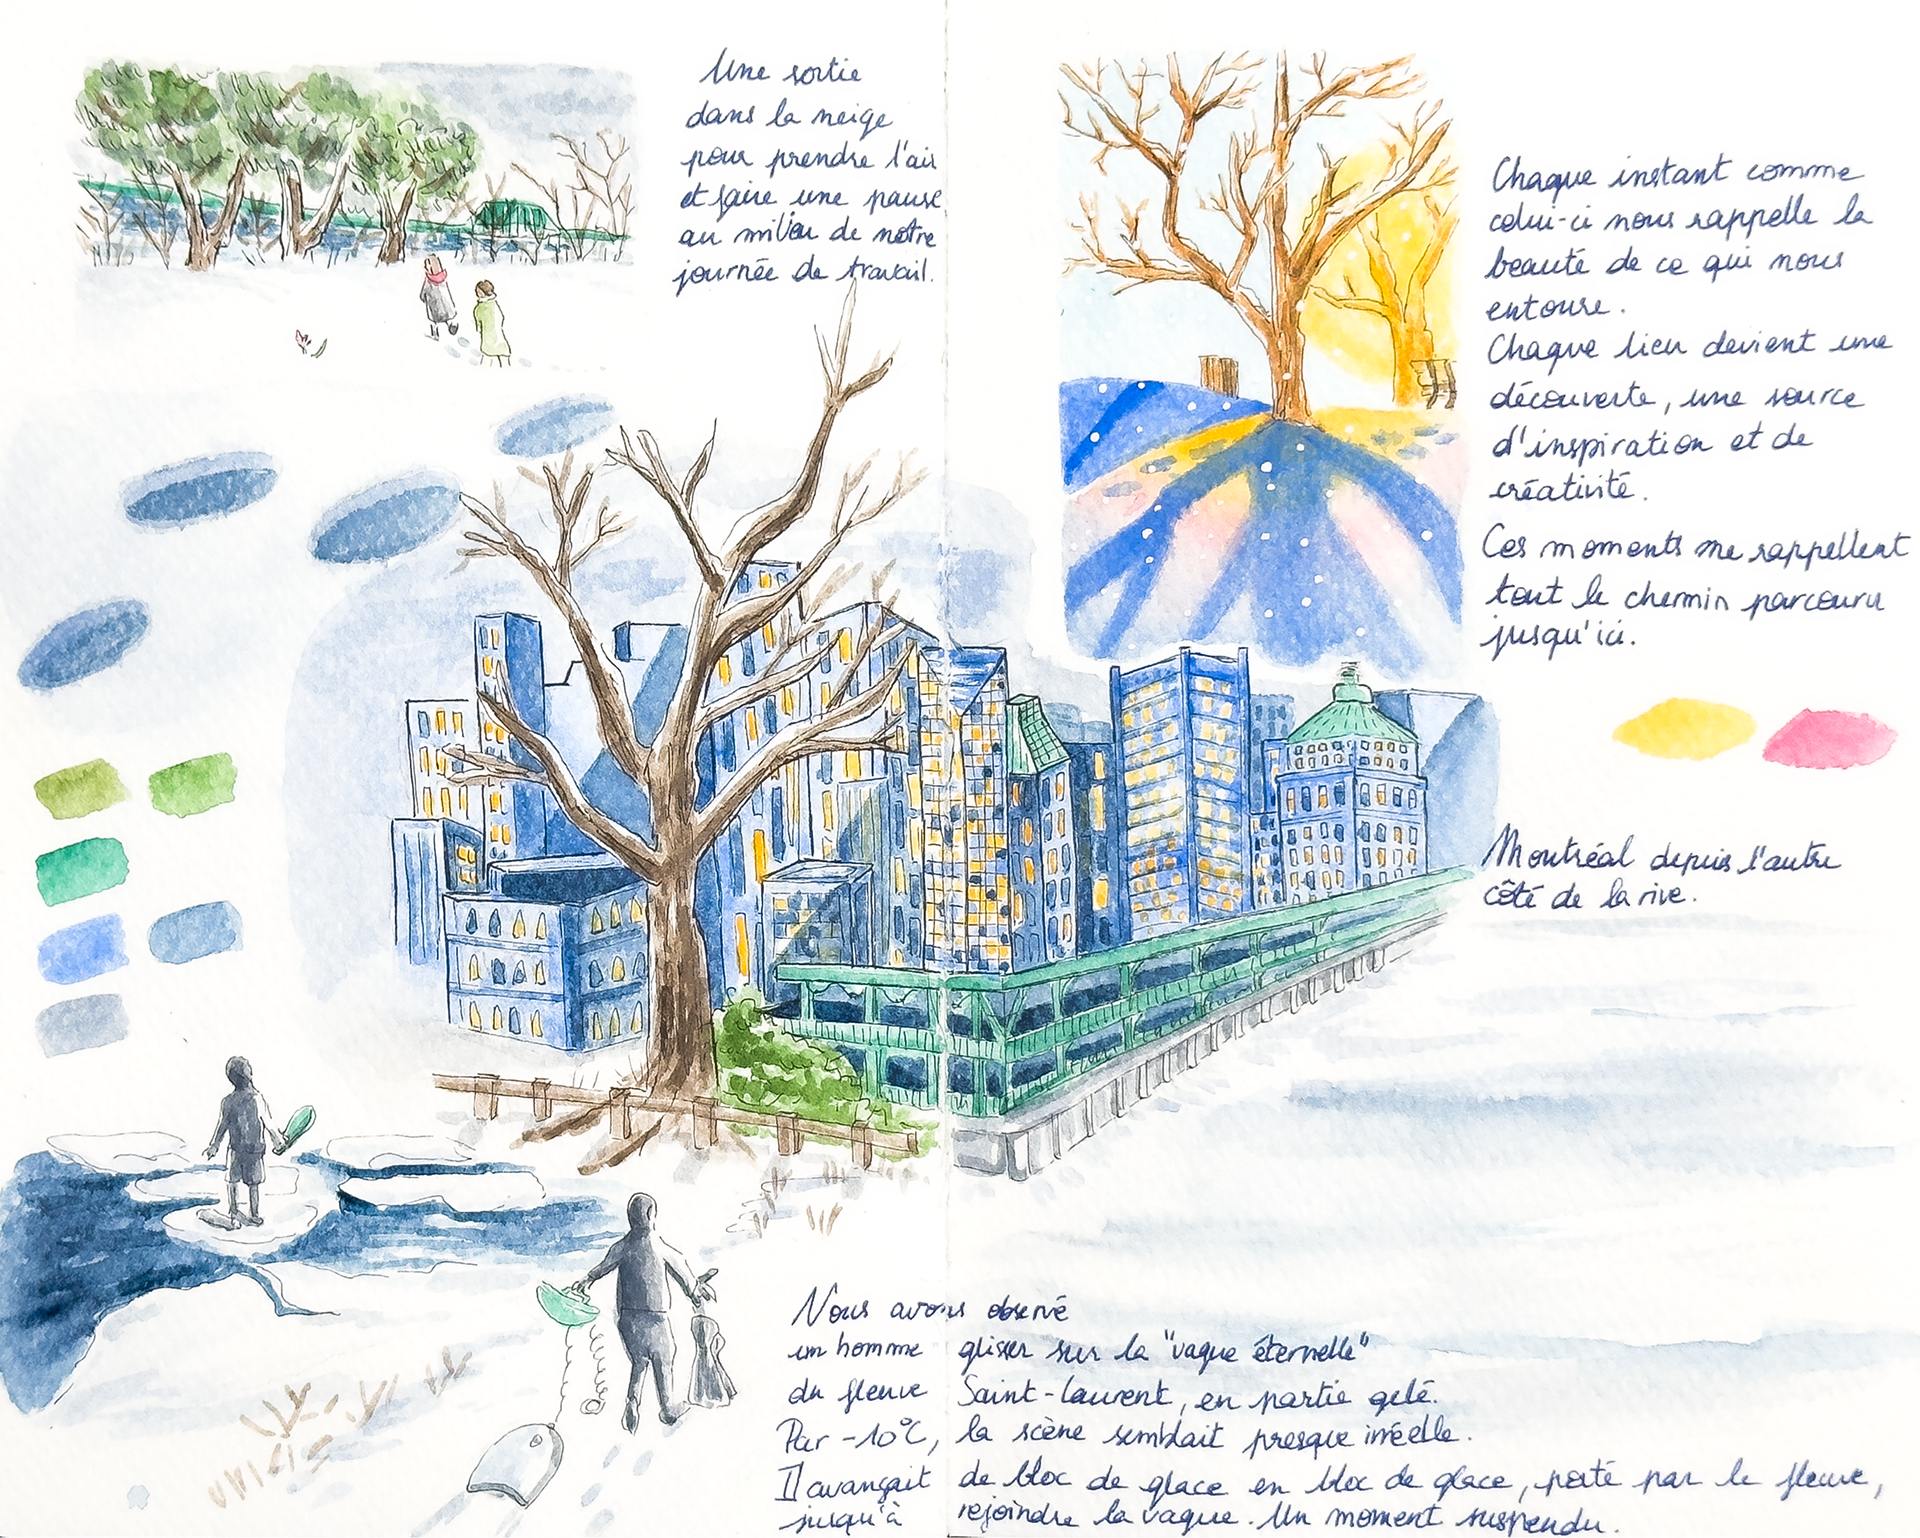 Une sortie
dans la neige
pour prendre l'air
et faire une pause
au milieu de notre
journée de travail.
Chaque instant comme
celui-ci nous rappelle la
beauté de ce qui nous
entoure.
Chaque lieu devient une
découverte, une source
d'inspiration et de
créativité.
Ces moments me rappellent
tout le chemin parcouru
jusqu'ici.
Montréal depuis l'autre
côté de la rive.
Nous avons observé
un homme glisser sur la "vague éternelle"
du fleuve Saint-Laurent, en partie gelé.
Par -10°C, la scène semblait presque irréelle.
Il avançait de bloc de glace en bloc de glace, porté par le fleuve,
jusqu'à rejoindre la vague. Un moment suspendu.